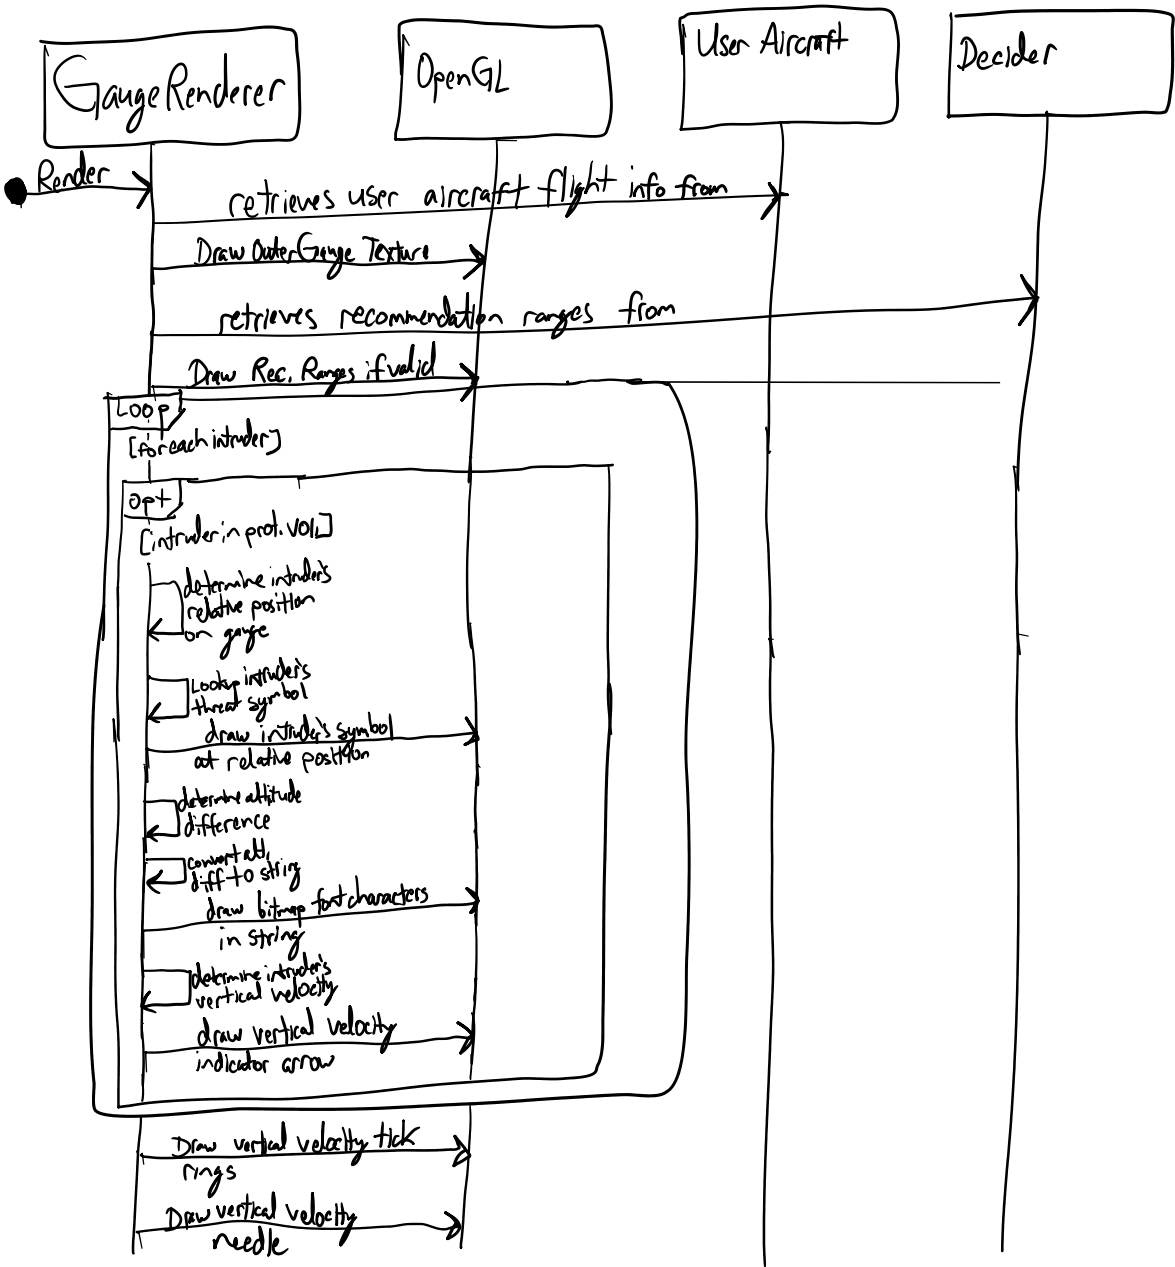 GaugeRenderer
OpenGL
User Aircraft
Decider
Render
retrieves user aircraft flight info from
Draw OuterGauge Texture
retrieves recommendation ranges from
Draw Rec. Ranges if valid
Loop
[foreach intruder]
opt
[intruder in prot. vol.]
determine intruder's
relative position
on gauge
Lookup intruder's
threat symbol
draw intruder's symbol
at relative position
determine altitude
difference
convert alt.
diff to string
draw bitmap font characters
in string
determine intruder's
vertical velocity
draw vertical velocity
indicator arrow
Draw vertical velocity tick
rings
Draw vertical velocity
needle